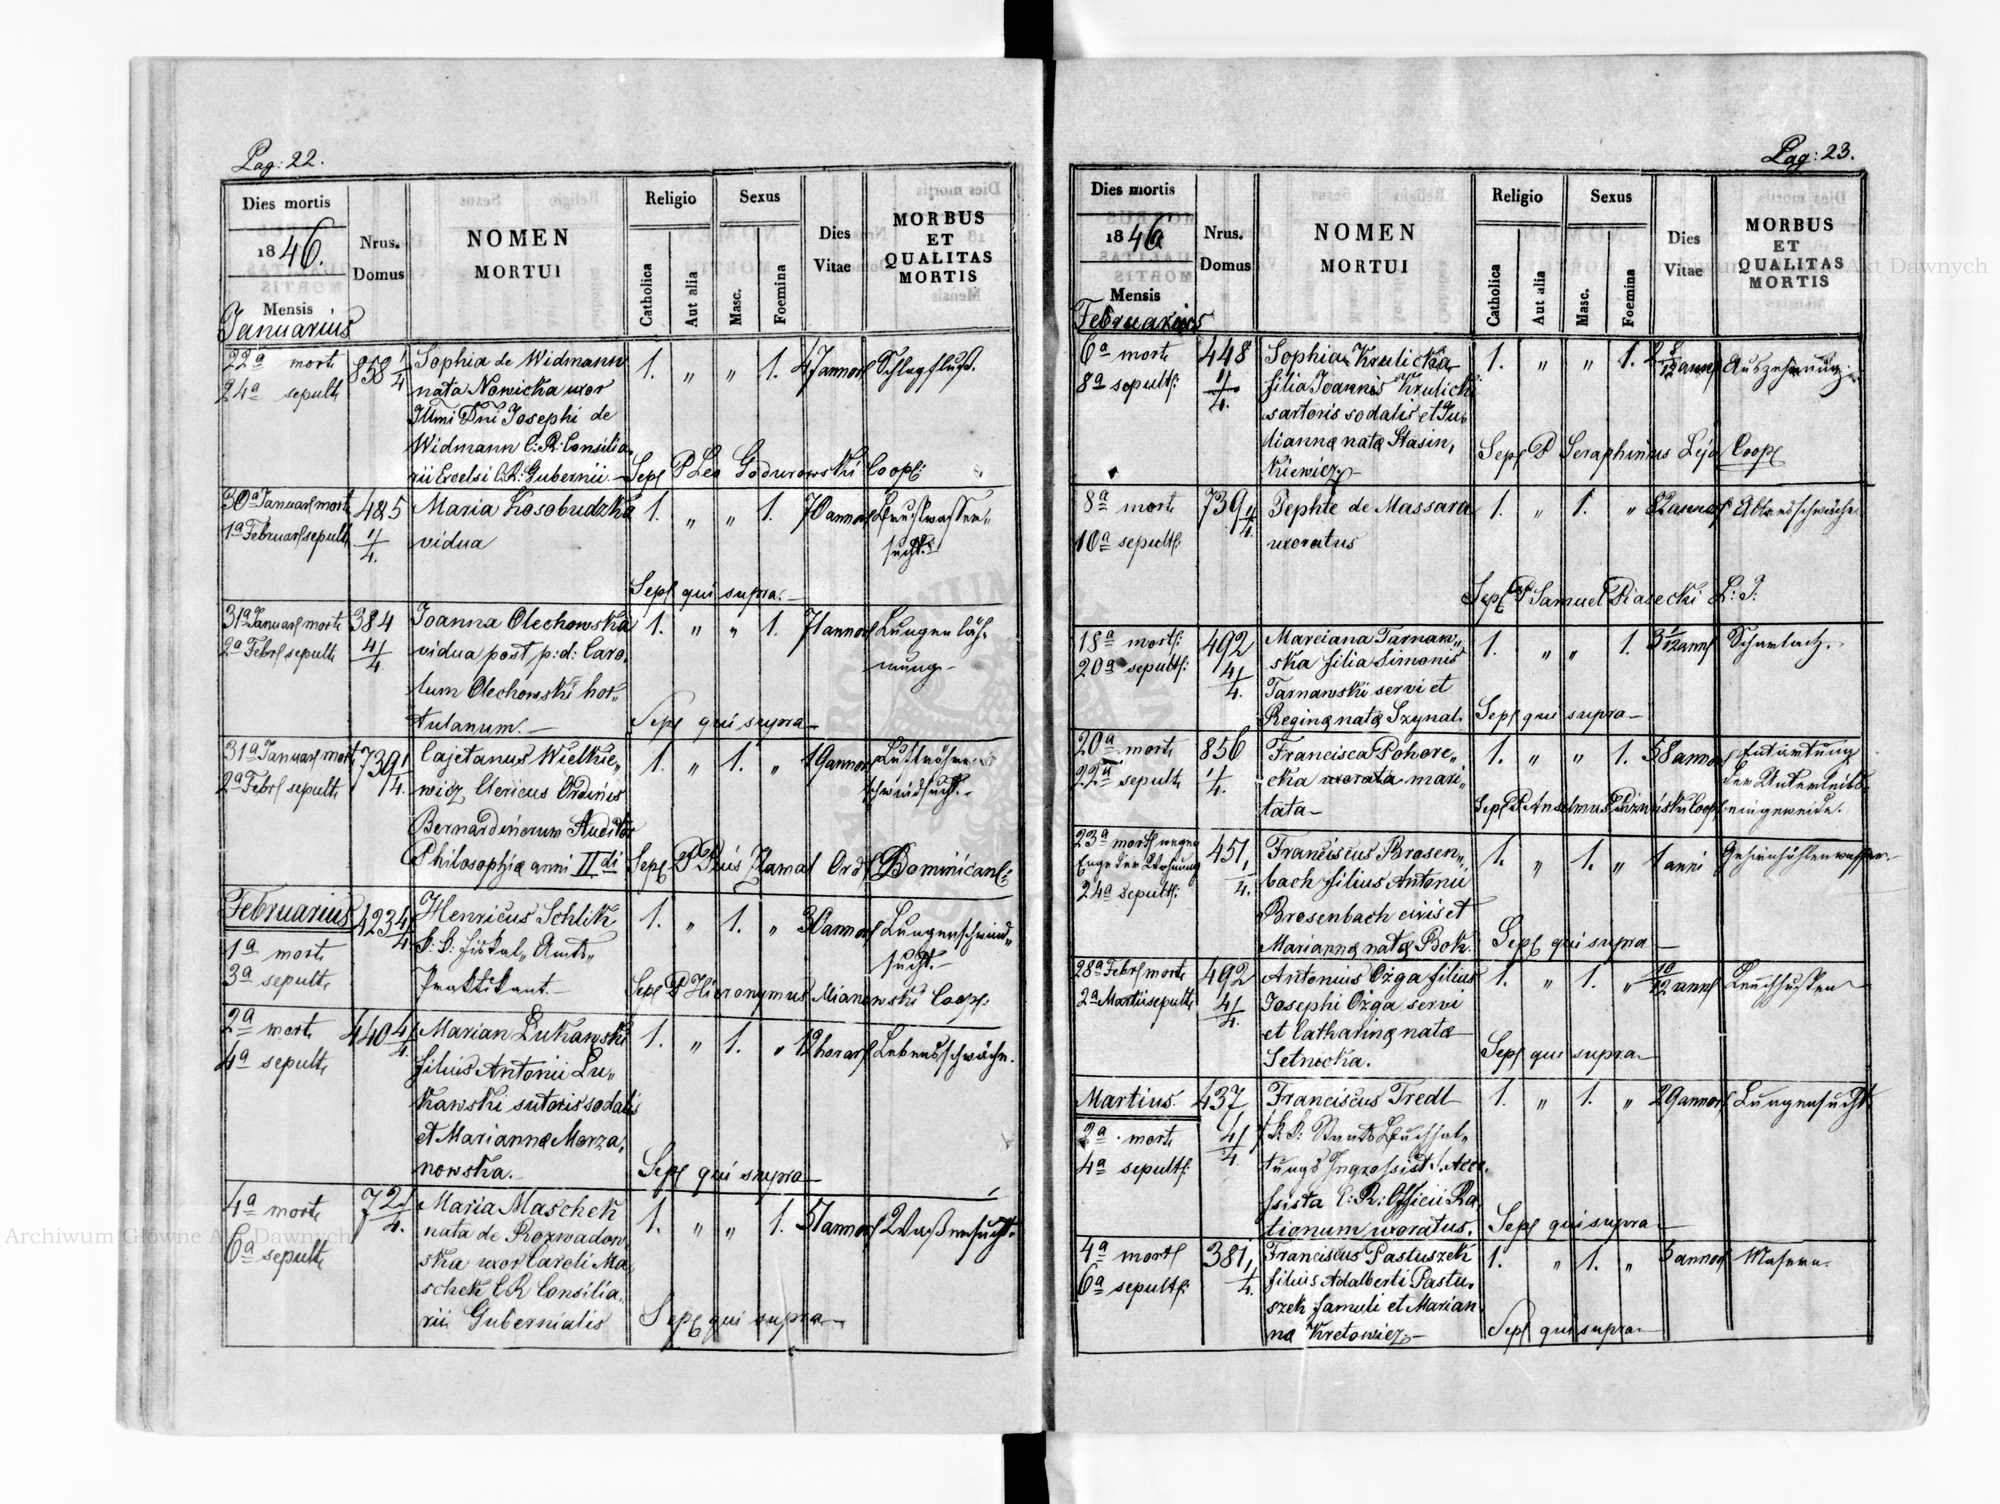 Pag: 22.
Dies mortis
1846.
Mensis
Januarius
Nrus.
Domus
NOMEN
MORTUI
Religio
Catholica
Aut alia
Sexus
Masc.
Foemina
Dies
Vitae
MORBUS
ET
QUALITAS
MORTIS
22a mort
24a sepult
858 1/4
Sophia de Widmann
nata Nowicka uxor
Illmi Dni Josephi de
Widmann C: R: Consilia
rii Excelsi C: R: Gubernii
1. " " 1. 47 annor Schlagfluß.
Sep P Leo Godurowski Coop:
30a Januar mort
1a Februar sepult
485
1/4.
Maria Kosobudzka
vidua
1. " " 1. 70 annor Brustwasser"
sucht.
Sep qui supra.
31a Januar mort
2a Febr sepult
384
4/4
Joanna Olechowska
vidua post p: d: Caro,
lum Olechowski hor"
tulanum.
1. " " 1. 71 annor Lungenläh"
mung
Sep qui supra
31a Januar mort
2a Febr sepult
739 1/4.
Cajetanus Wielkie"
wicz Clericus Ordinis
Bernardinorum Auditor
Philosophiæ anni II di
1. " 1. " 19 annor Luftröhren
schwindsucht.
Sep P Pius Ord Dominican:
Februarius
1a mort
3a sepult
423 4/4
Henricus Schlik
K: K: Fiskal" Amts"
Praktikant.
1. " 1. " 30 annor Lungenschwind"
sucht.
Sep P Hieronymus Mianowski Coop:
2a mort
4a sepult
440 4/4.
Marian Lukawski
filius Antonii Lu"
kawski sutoris sodalis
et Mariannæ Marza,
nowska.
1. " 1. " 12 horar Lebensschwäche.
Sep qui supra
4a mort
6a sepult
72 1/4.
Maria Maschek
nata de Rozwadow
ska uxor Caroli Ma
schek C R Consilia,
rii Gubernialis
1. " " 1. 51 annor Waßersucht.
Sep qui supra
Pag: 23.
Dies mortis
1846
Mensis
Februarius
Nrus.
Domus
NOMEN
MORTUI
Religio
Catholica
Aut alia
Sexus
Masc.
Foemina
Dies
Vitae
MORBUS
ET
QUALITAS
MORTIS
6a mort
8a sepult:
448
1/4.
Sophia Krulicka
filia Joannis Krulicki
sartoris sodalis et Ju"
liannæ natæ Stasin,
kiewicz
1. " " 1. 2 8/12 annor Auszehrung.
Sep P Seraphinus Coop
8a mort
10a sepult:
739 1/4.
Jephte de Massara
uxoratus
1. " 1. " 82 annor Altersschwäche
Sep P Samuel Piasecki L: J:
18a mort:
20a sepult:
492
4/4.
Marciana Tarnaw"
ska filia Simonis
Tarnawski servi et
Reginæ natæ Szynal.
1. " " 1. 3 1/12 ann Scharlach.
Sep qui supra
20a mort
22a sepult
856
1/4.
Francisca Pohore"
cka uxorata mari"
tata
1. " " 1. 58 annor Entartung
der Unterleibs"
eingeweide.
Sep P Anselmus Coop
23a mort wegen
Enge der Wohnung
24a sepult:
451,
/4.
Franciscus Brosen"
bach filius Antonii
Brosenbach civis et
Mariannæ natæ Bok.
1. " 1. " 1 anni Gehirnhöhlenwasser.
Sep qui supra
28a Febr mort
2a Martii sepult
492
4/4.
Antonius Ożga filius
Josephi Ożga servi
et Catharinæ natæ
Setnicka.
1. " 1. " 10/12 ann Keuchhusten
Sep qui supra
Martius
2a mort
4a sepult:
437
4/4.
Franciscus Tredl
K: K: Staats Buchhal"
tungs Ingrossist. Acce,
ssista C: R: Officii Ra
tionum uxoratus.
1. " 1. " 29 annor Lungensucht.
Sep qui supra
4a mort
6a sepult:
381,
/4.
Franciscus Pastuszek
filius Adalberti Pastu,
szek famuli et Marian
na Kretowicz
1. " 1. " 3 annor Masern.
Sep qui supra
Archiwum Główne Akt Dawnych
Archiwum Główne Akt Dawnych